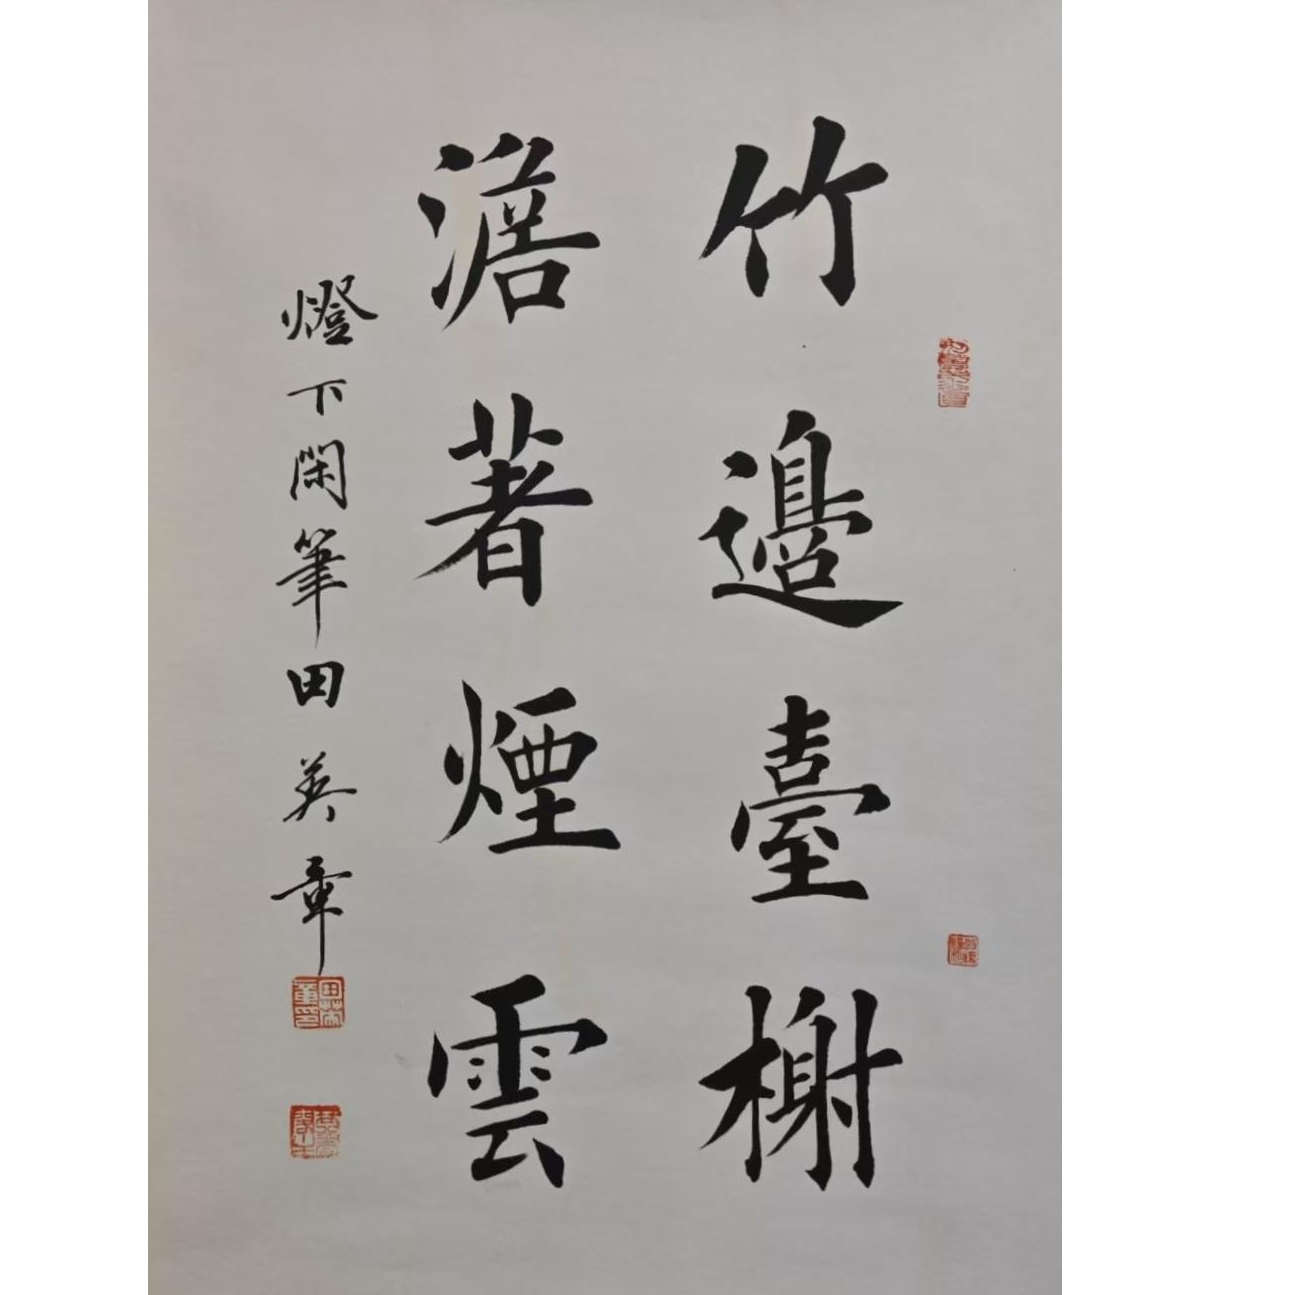 竹邊臺榭
澹著煙雲
燈下閑筆田英章
田英章印